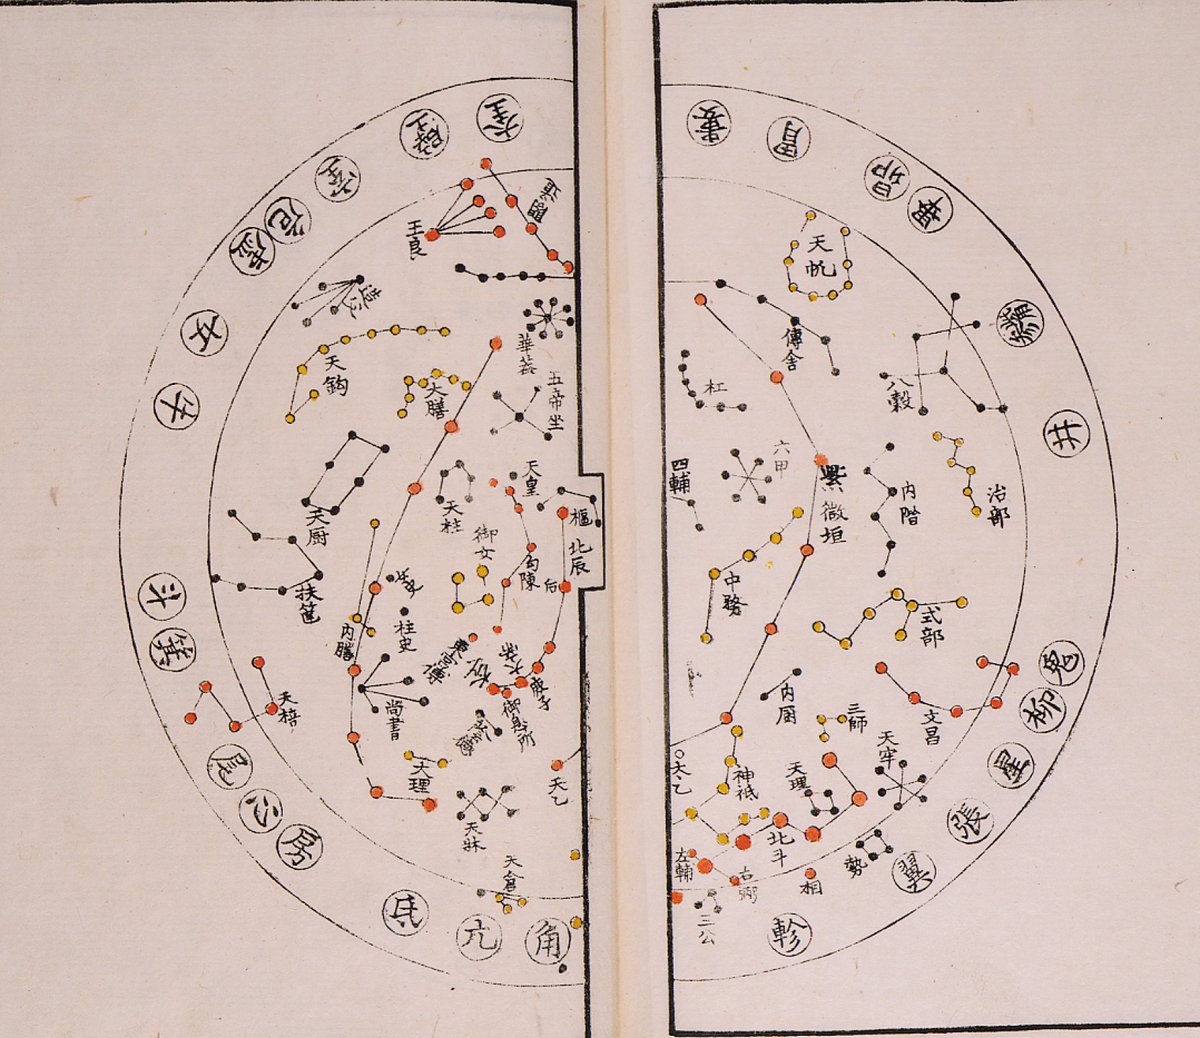 奎
壁
室
危
虛
女
牛
斗
箕
尾
心
房
氐
亢
角
王良
閣道
造父
天鈎
大膳
華蓋
五帝坐
天皇
天柱
御女
天厨
扶筐
勾陳
樞
北辰
后
女史
柱史
内膳
尚書
東宮傳
太子
庶子
御息所
天棓
大理
天乙
天牀
天倉
婁
胃
昴
畢
觜
參
井
鬼
柳
星
張
翼
軫
天帆
傳舍
八穀
杠
六甲
四輔
紫微垣
内階
治部
中務
式部
内厨
三師
文昌
天牢
太乙
神祇
天理
北斗
勢
左輔
右弼
相
三公